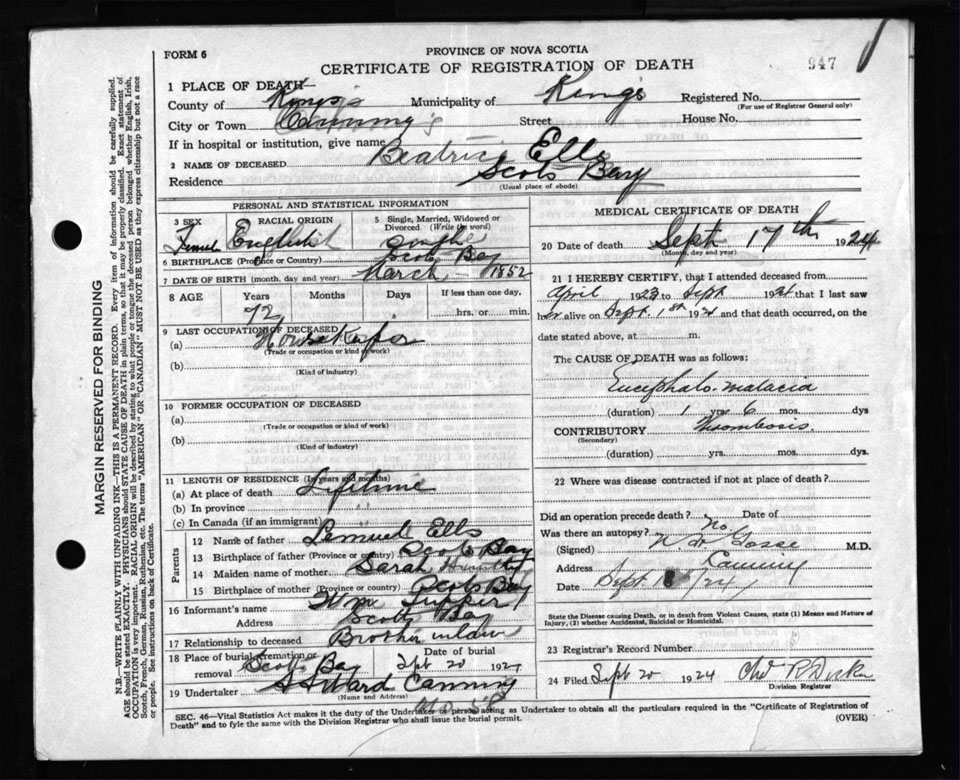 FORM 6
PROVINCE OF NOVA SCOTIA
CERTIFICATE OF REGISTRATION OF DEATH
947
1 PLACE OF DEATH—
County of Kings Municipality of Kings Registered No.
(For use of Registrar General only)
City or Town Canning Street House No.
If in hospital or institution, give name
2 NAME OF DECEASED Beatrice Ells
Residence Scots Bay
(Usual place of abode)
PERSONAL AND STATISTICAL INFORMATION
3 SEX
RACIAL ORIGIN
5 Single, Married, Widowed or Divorced (Write the word)
English Single
6 BIRTHPLACE (Province or Country) Scots Bay
7 DATE OF BIRTH (month, day and year) March - 1852
8 AGE Years Months Days If less than one day,
72 hrs. or min.
9 LAST OCCUPATION OF DECEASED
(a) Housekeeper
(Trade or occupation or kind of work)
(b)
(Kind of industry)
10 FORMER OCCUPATION OF DECEASED
(a)
(Trade or occupation or kind of work)
(b)
(Kind of industry)
11 LENGTH OF RESIDENCE (In years and months)
(a) At place of death Lifetime
(b) In province "
(c) In Canada (if an immigrant) "
Parents
12 Name of father Lemuel Ells
13 Birthplace of father (Province or country) Scots Bay
14 Maiden name of mother Sarah Huntly
15 Birthplace of mother (Province or country) Scots Bay
16 Informant's name Wm Tupper
Address Scots Bay
17 Relationship to deceased Brother inlaw
18 Place of burial, cremation or removal Scots Bay Date of burial Sept 20 1924
19 Undertaker Ward Canning
(Name and Address)
MEDICAL CERTIFICATE OF DEATH
20 Date of death Sept 17th 1924
(Month, day and year)
21 I HEREBY CERTIFY, that I attended deceased from
April 1923 to Sept 1924 that I last saw
her alive on Sept. 1924 and that death occurred, on the
date stated above, at m.
The CAUSE OF DEATH was as follows:
Encephalo-malacia
(duration) 1 yrs. 6 mos. dys
CONTRIBUTORY Thrombosis.
(Secondary)
(duration) yrs. mos. dys.
22 Where was disease contracted if not at place of death?
Did an operation precede death? Date of
Was there an autopsy? No
(Signed) M.D.
Address Canning
Date Sept 18/24
State the Disease causing Death, or in death from Violent Causes, state (1) Means and Nature of Injury, (2) whether Accidental, Suicidal or Homicidal.
23 Registrar's Record Number
24 Filed Sept 20 1924
Division Registrar
SEC. 46—Vital Statistics Act makes it the duty of the Undertaker or person acting as Undertaker to obtain all the particulars required in the "Certificate of Registration of
Death" and to fyle the same with the Division Registrar who shall issue the burial permit.
(OVER)
MARGIN RESERVED FOR BINDING
N.B.—WRITE PLAINLY WITH UNFADING INK—THIS IS A PERMANENT RECORD. Every item of information should be carefully supplied.
AGE should be stated EXACTLY. PHYSICIANS should STATE CAUSE OF DEATH in plain terms, so that it may be properly classified. Exact statement of
OCCUPATION is very important. RACIAL ORIGIN will be described by stating to what people or tongue the deceased person belonged whether English, Irish,
Scotch, French, German, Russian, Ruthenian, etc. The terms "AMERICAN" OR "CANADIAN" MUST NOT BE USED as they express citizenship but not a race
or people. See instructions on back of Certificate.